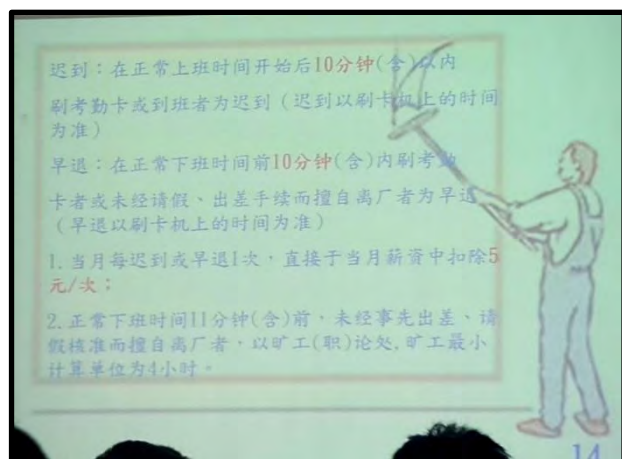 迟到：在正常上班时间开始后10分钟(含)以内
刷考勤卡或到班者为迟到（迟到以刷卡机上的时间
为准）
早退：在正常下班时间前10分钟(含)内刷考勤
卡者或未经请假、出差手续而擅自离厂者为早退
（早退以刷卡机上的时间为准）
1.当月每迟到或早退1次，直接于当月薪资中扣除5
元/次；
2.正常下班时间11分钟(含)前，未经事先出差、请
假核准而擅自离厂者，以旷工(职)论处,旷工最小
计算单位为4小时。
14